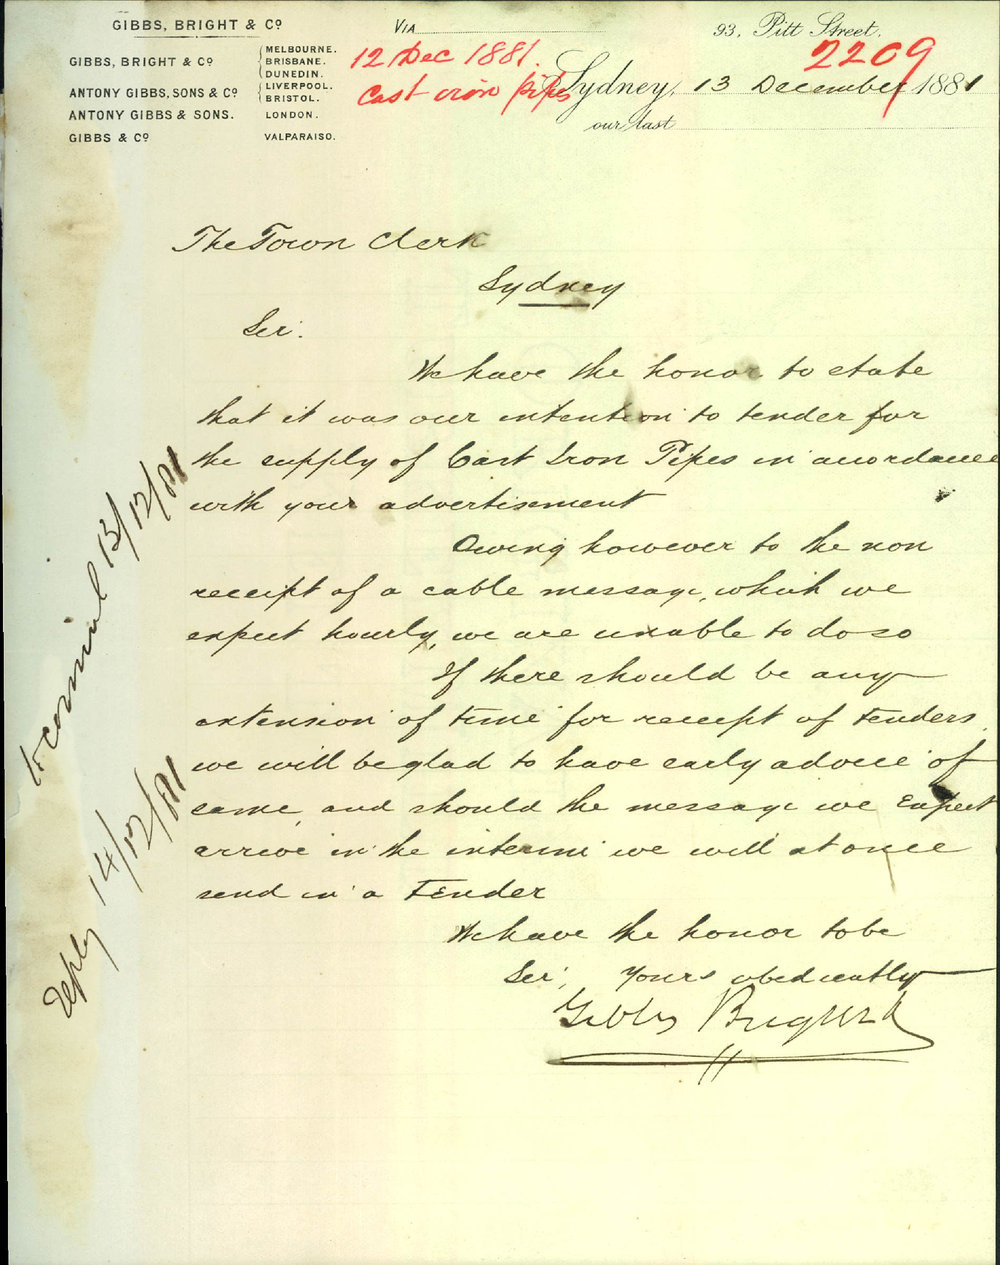 GIBBS, BRIGHT & Cº
GIBBS, BRIGHT & Cº { MELBOURNE. BRISBANE. DUNEDIN.
ANTONY GIBBS, SONS & Cº { LIVERPOOL. BRISTOL.
ANTONY GIBBS & SONS. LONDON.
GIBBS & Cº VALPARAISO.
VIA
93, Pitt Street,
12 Dec 1881.
Cast iron pipes
2209
Sydney, 13 December 1881
our last
The Town Clerk
Sydney
Sir.
We have the honor to state
that it was our intention to tender for
the supply of Cast Iron Pipes in accordance
with your advertisement
Owing however to the non
receipt of a cable message, which we
expect hourly, we are unable to do so
If there should be any
extension of time for receipt of Tenders.
we will be glad to have early advice of
same, and should the message we Expect
arrive in the interim we will at once
send in a Tender
We have the honor to be
Sir, Yours obediently
Gibbs Bright & Co
13/12/81
reply 14/12/81